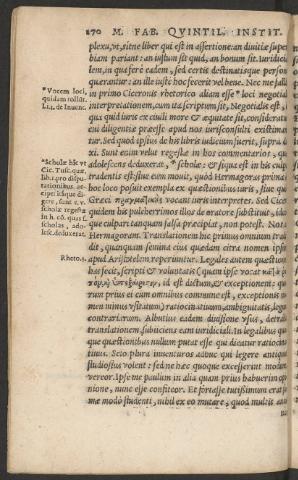 170 M. FAB. QVINTIL. INSTIT.
plexu, vt, sitne liber qui est in assertione: an diuitiæ super
biam pariant: an iustum sit quid, an bonum sit. Iuridicia
lem, in qua ferè eadem, sed certis destinatisque personis
quærantur: an ille iustè hoc fecerit vel bene. Nec me fallit
in primo Ciceronis rhetorico aliam esse * loci negotialis
interpretationem, cum ita scriptum sit, Negotialis est,
qua quid iuris ex ciuili more & æquitate sit, consideratur:
cui diligentiæ præesse apud nos iurisconsulti existiman-
tur. Sed quod ipsius de his libris iudicium fuerit, supra di
xi. Sunt enim velut regesta in hos commentarios, quos
adolescens deduxerat, * scholæ: & si qua est in his culpa
tradentis est: siue eum mouit, quòd Hermagoras prima in
hoc loco posuit exempla ex quæstionibus iuris, siue quòd
Græci πραγματικοὺς vocant iuris interpretes. Sed Cicero
quidem his pulcherrimos illos de oratore substituit, ideo
que culpari tanquam falsa præcipiat, non potest. Nos ad
Hermagoram. Translationem hic primus omnium tradi
dit, quanquam semina eius quædam citra nomen ipsum
apud Aristotelem reperiuntur. Legales autem quæstiones
has fecit, scripti & voluntatis (quam ipse vocat κατὰ ῥη
id est dictum, & exceptionem: quo
rum prius ei cum omnibus commune est, exceptionis no
men minus vsitatum) ratiocinatiuum, ambiguitatis, legum
contrariarum. Albutius eadem diuisione vsus, detrahit
translationem, subiiciens eam iuridiciali. In legalibus quo
que quæstionibus nullum putat esse qui dicatur ratiocina
tiuus. Scio plura inuenturos adhuc qui legere antiquos
studiosius volent: sed ne hæc quoque excesserint modum
vereor. Ipse me paullum in alia quam prius habuerim opi
nione, nunc esse confiteor. Et fortasse tutissimum erat fa
mæ modò studenti, nihil ex eo mutare, quod multis annis
* Vocem loci,
quidam tollūt.
Li. 1. de Inuent.
* Scholæ hîc vt
Cic. Tusc. quæ.
lib. 1. pro dispu-
tationibus ac-
cipe:
Rheto. 1.